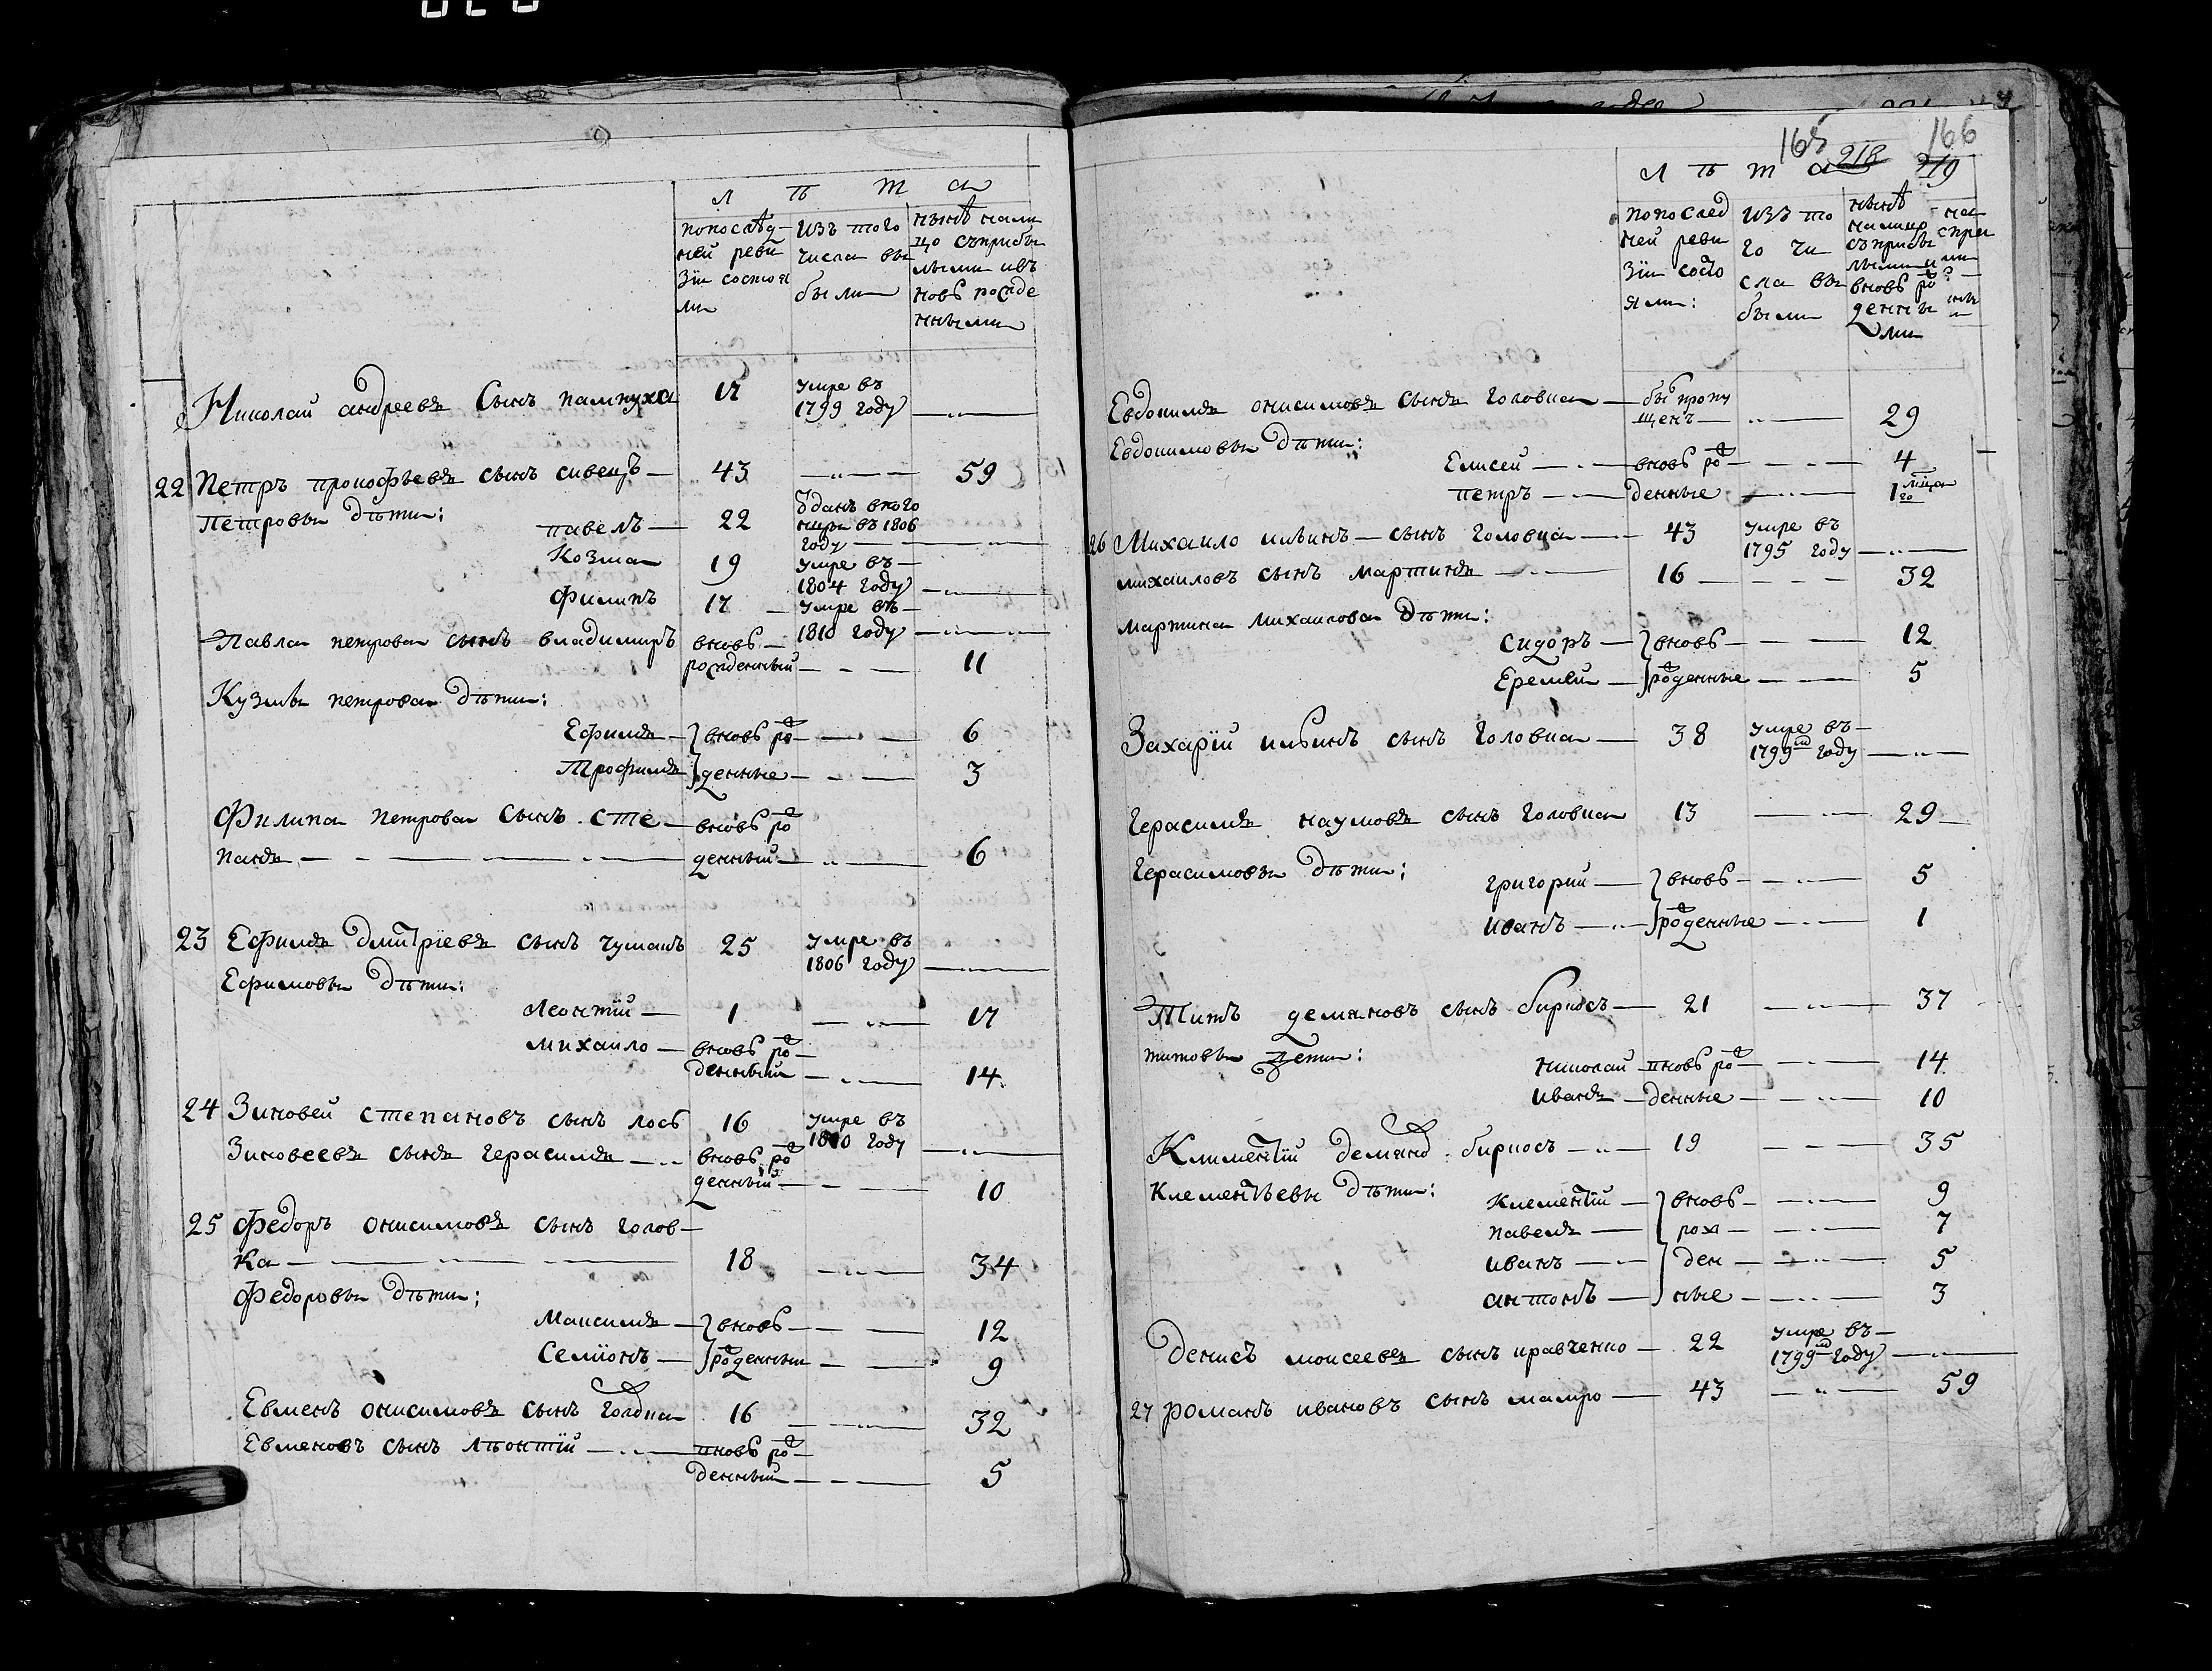 Л ѣ т а
попослѣд-
ней реви
зіи состоя
ли
изъ того
числа вы
были
нынѣ нали
цо съприбы
лыми ивъ
новь рожде
нными
Николай андреевъ Сынъ пампуха 17 умре въ
1799 году
22 Петръ прокофьевъ сынъ сивецъ 43 59
Петровы дѣти:
павелъ 22 Зданъ вкого
ницы въ 1806
году
Козма 19 умре въ
1804 году
Филипъ 17 умре въ
1810 году
Павла петрова сынъ владимиръ вновь
рожденный 11
Кузмы петрова дѣти:
Ефимъ вновь ро 6
Трофимъ жденные 3
Филипа Петрова Сынъ Сте- вновь ро
панъ денный 6
23 Ефимъ Дмитріевъ сынъ чумакъ 25 умре въ
1806 году
Ефимовы дѣти:
Леонтій 1 17
михайло вновь ро
денный 14
24 Зиновей степановъ сынъ лось 16 умре въ
1810 году
Зиновеевъ сынъ герасимъ вновь ро
денный 10
25 Федоръ онисимовъ сынъ голов-
ка 18 34
Федоровы дѣти:
Максимъ вновь 12
Семіонъ роденныи 9
Евменъ онисимовъ сынъ головка 16 32
Евменовъ сынъ лѣонтій вновь ро
денный 5
165 218 166
219
Л ѣ т а
попослед
ней реви
зіи состо
яли:
изъ то
го чи
сла вы
были
нынѣ
налицо
съприбы
лыми и
вновь ро
денны
ми
Евдокимъ онисимовъ сынъ головка бы пропу
щенъ 29
Евдокимовы дѣти:
Елисей вновь ро 4
петръ денные 1 го
26 Михайло ильинъ сынъ головка 43 умре въ
1795 году
михайловъ сынъ мартинъ 16 32
мартина михайлова дѣти:
сидоръ вновь 12
Еремѣй роденные 5
Захарій ильинъ сынъ головка 38 умре въ
1799м году
Герасимъ наумовъ сынъ головка 13 29
Герасимовы дѣти:
григорий вновь 5
иванъ роденные 1
Титъ демяновъ сынъ бирносъ 21 37
титовы дети:
николай вновь ро 14
иванъ денные 10
Климентій демяно бирносъ 19 35
Клементьевы дѣти:
Клементій вновь 9
павелъ рож 7
иванъ ден 5
антонъ ные 3
Денисъ моисеевъ сынъ кравченко 22 умре въ
1799м году
27 романъ ивановъ сынъ мамро 43 59